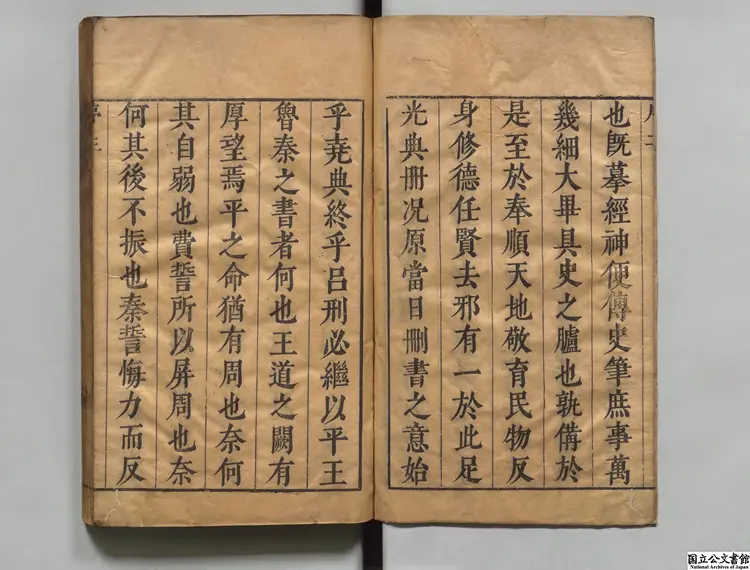 也旣摹經神便傳史筆庶事萬
幾細大畢具史之臚也孰備於
是至於奉順天地敬育民物反
身修德任賢去邪有一於此足
光典冊况原當日刪書之意始
乎堯典終乎呂刑必繼以平王
魯秦之書者何也王道之闕有
厚望焉平之命猶有周也奈何
其自弱也費誓所以屏周也奈
何其後不振也秦誓悔力而反
國立公文書館
National Archives of Japan